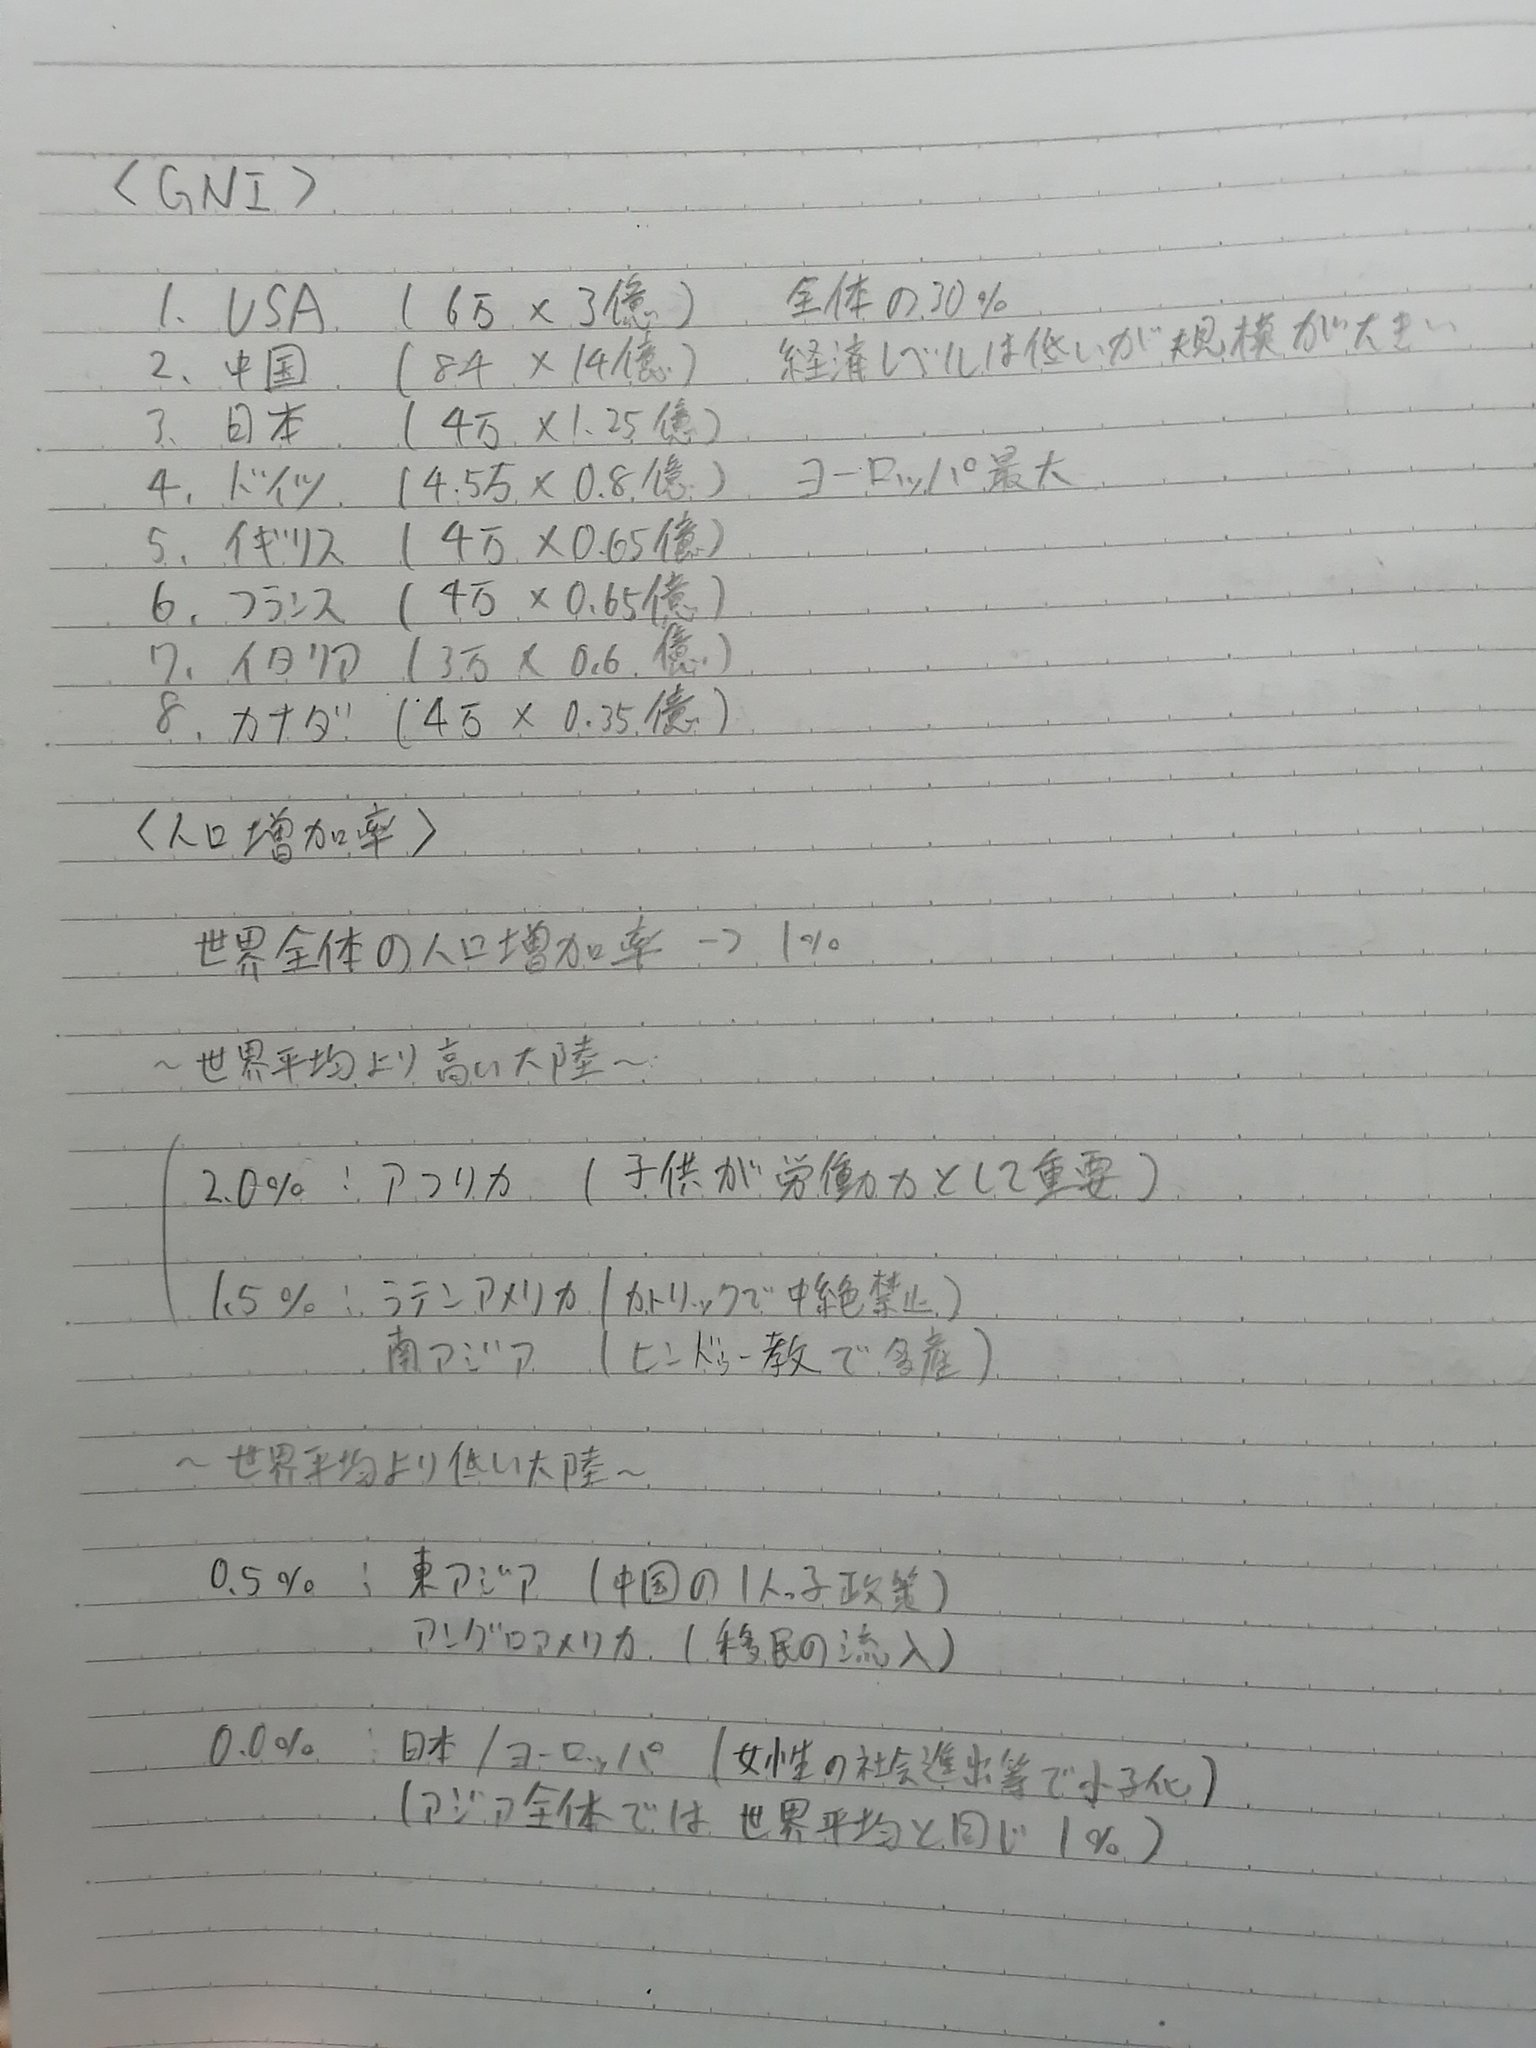 〈GNI〉
1. USA (6万 × 3億) 全体の30%
2. 中国 (8千 × 14億) 経済レベルは低いが規模が大きい
3. 日本 (4万 × 1.25億)
4. ドイツ (4.5万 × 0.8億) ヨーロッパ最大
5. イギリス (4万 × 0.65億)
6. フランス (4万 × 0.65億)
7. イタリア (3万 × 0.6億)
8. カナダ (4万 × 0.35億)
〈人口増加率〉
世界全体の人口増加率 → 1%
~世界平均より高い大陸~
2.0% : アフリカ (子供が労働力として重要)
1.5% : ラテンアメリカ (カトリックで中絶禁止)
南アジア (ヒンドゥー教で多産)
~世界平均より低い大陸~
0.5% : 東アジア (中国の1人っ子政策)
アングロアメリカ (移民の流入)
0.0% : 日本/ヨーロッパ (女性の社会進出等で少子化)
(アジア全体では世界平均と同じ1%)